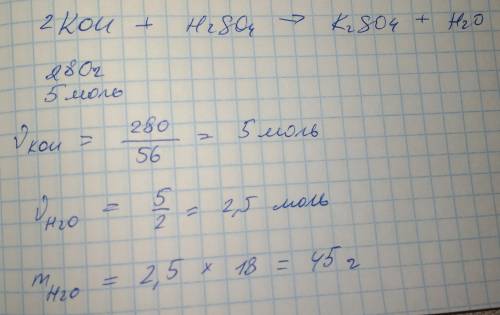 2KOH + H₂SO₄ → K₂SO₄ + H₂O
280г
5 моль
ν KOH = 280/56 = 5 моль
ν H₂O = 5/2 = 2,5 моль
m H₂O = 2,5 × 18 = 45 г